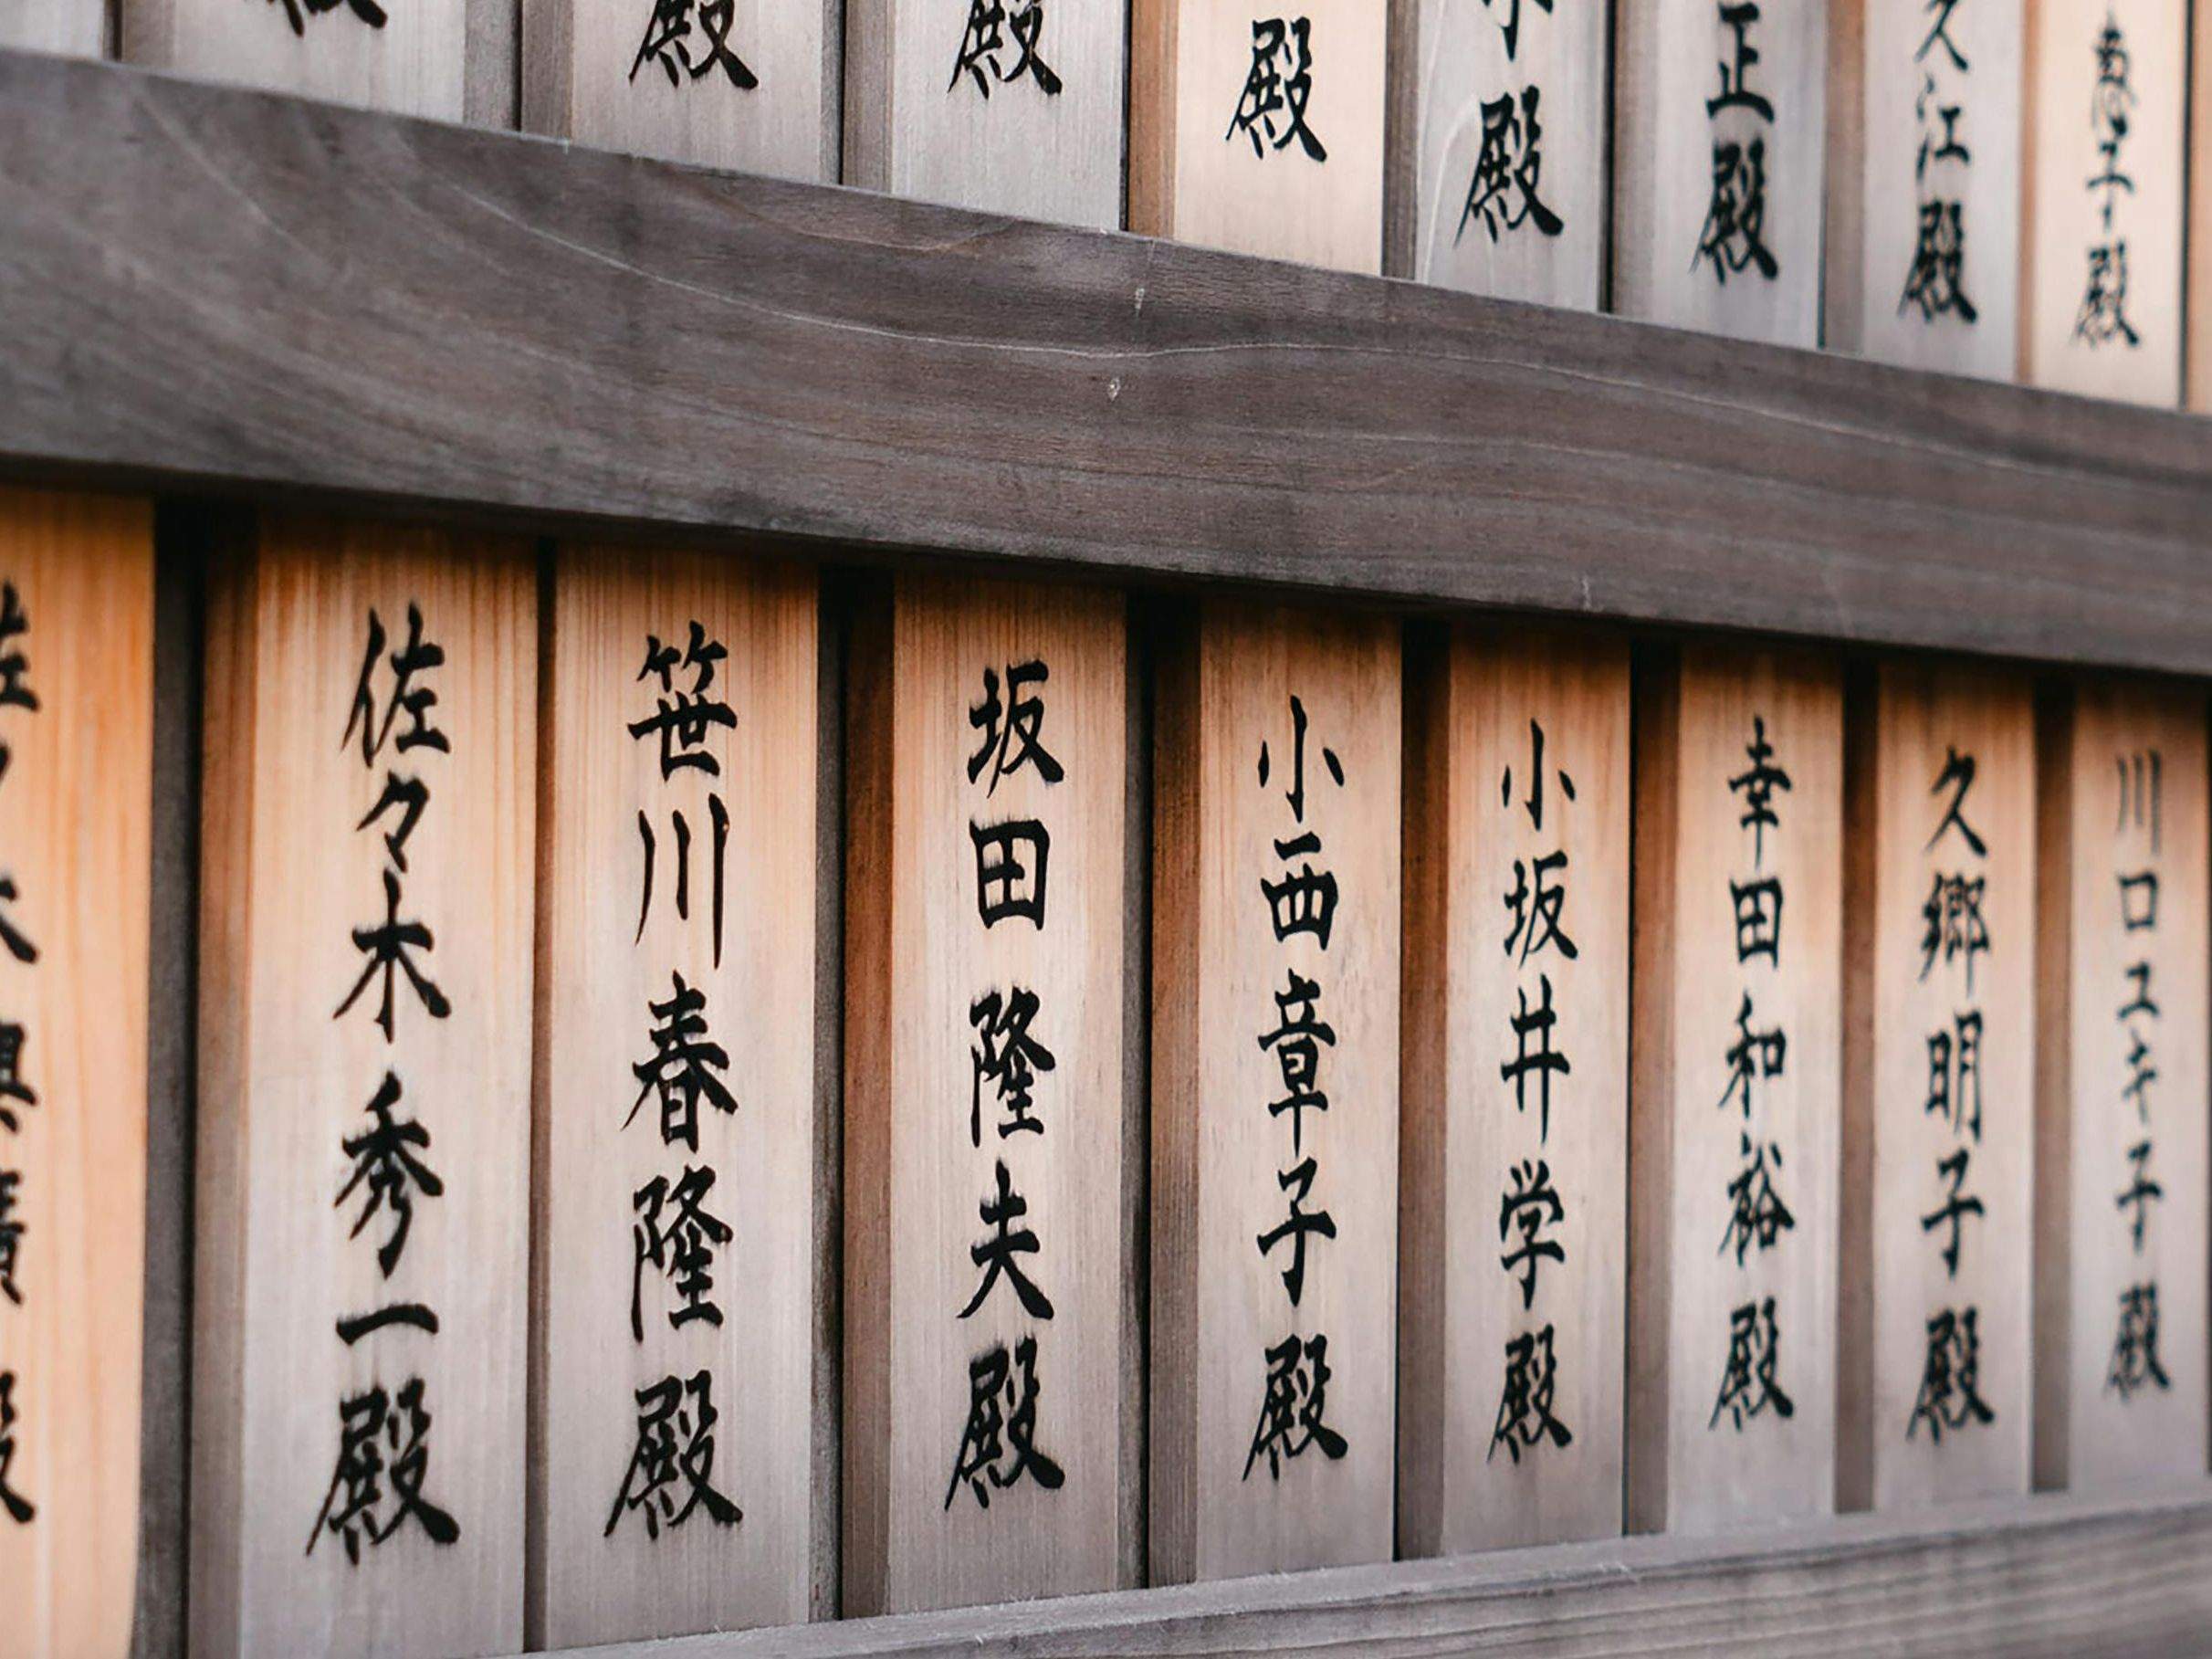 殿
殿
殿
殿
正殿
久江殿
子殿
佐々木秀一殿
笹川春隆殿
坂田隆夫殿
小西章子殿
小坂井学殿
幸田和裕殿
久郷明子殿
川口ユキ子殿